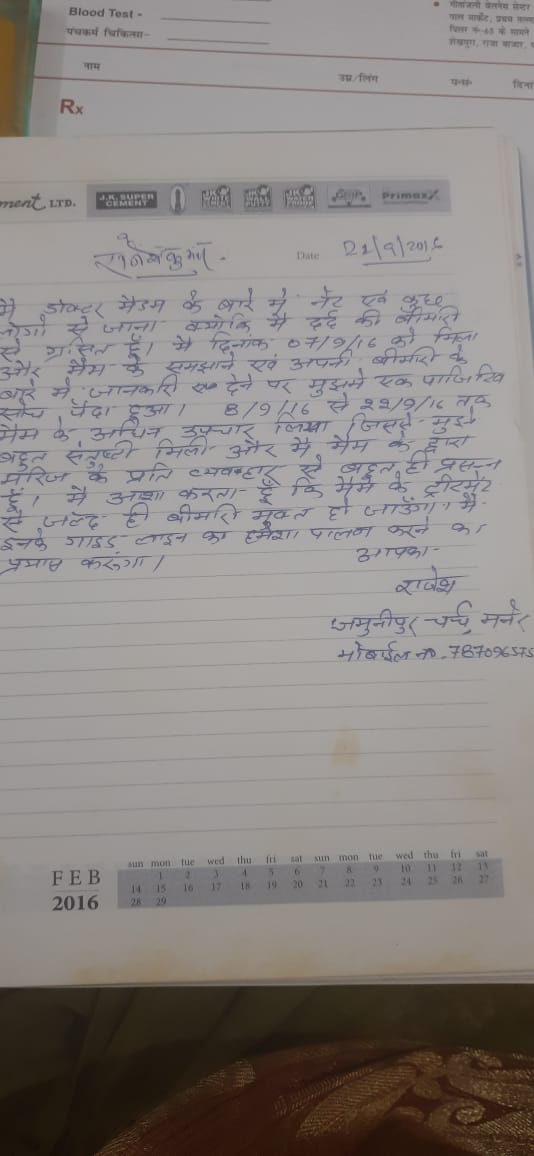 Blood Test -
पंचकर्म चिकित्सा-
गीतांजली वेलनेस सेन्टर
पाल मार्केट, प्रथम तल्ला
पिलर नं-45 के सामने
शेखपुरा, राजा बाजार,
नाम
उम्र/लिंग
दिनां
Rx
ment LTD.
J.K. SUPER CEMENT
Primaxx
Date 21/9/2016
मै डॉक्टर मैडम के बारे मे नेट एवं कुछ
लोगो से जाना क्योकि मै दर्द की बीमारी
से ग्रसित हूँ। मै दिनांक 07/9/16 को मिला
और मैम के समझाने एवं अपनी बीमारी के
बारे मे जानकारी देने पर मुझमे एक पाजिटिव
सोच पैदा हुआ। 8/9/16 से 22/9/16 तक
मैम के अधिन उपचार लिया जिससे मुझे
बहुत संतुष्टी मिली और मै मैम के द्वारा
मरिज के प्रति व्यवहार से बहुत ही प्रसन्न
हूँ। मै आशा करता हूँ कि मैम के ट्रीटमेंट
से जल्द ही बीमारी मुक्त हो जाउँगा। मै
इनके गाइड लाइन का हमेशा पालन करने का
प्रयास करूंगा। आपका-
राजेश
जमुनीपुर चर्च, मनेर
मोबाईल no. 787096575
FEB
2016
sun mon tue wed thu fri sat sun mon tue wed thu fri sat
1 2 3 4 5 6 7 8 9 10 11 12 13
14 15 16 17 18 19 20 21 22 23 24 25 26 27
28 29